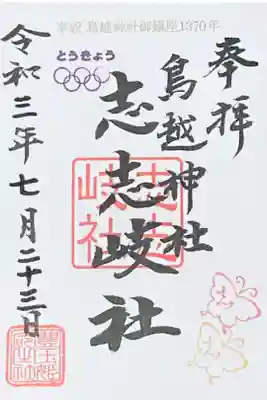 奉祝 鳥越神社御鎮座1370年
奉拝
鳥越神社
志志岐社
令和三年七月二十三日
とうきょう
志志岐社